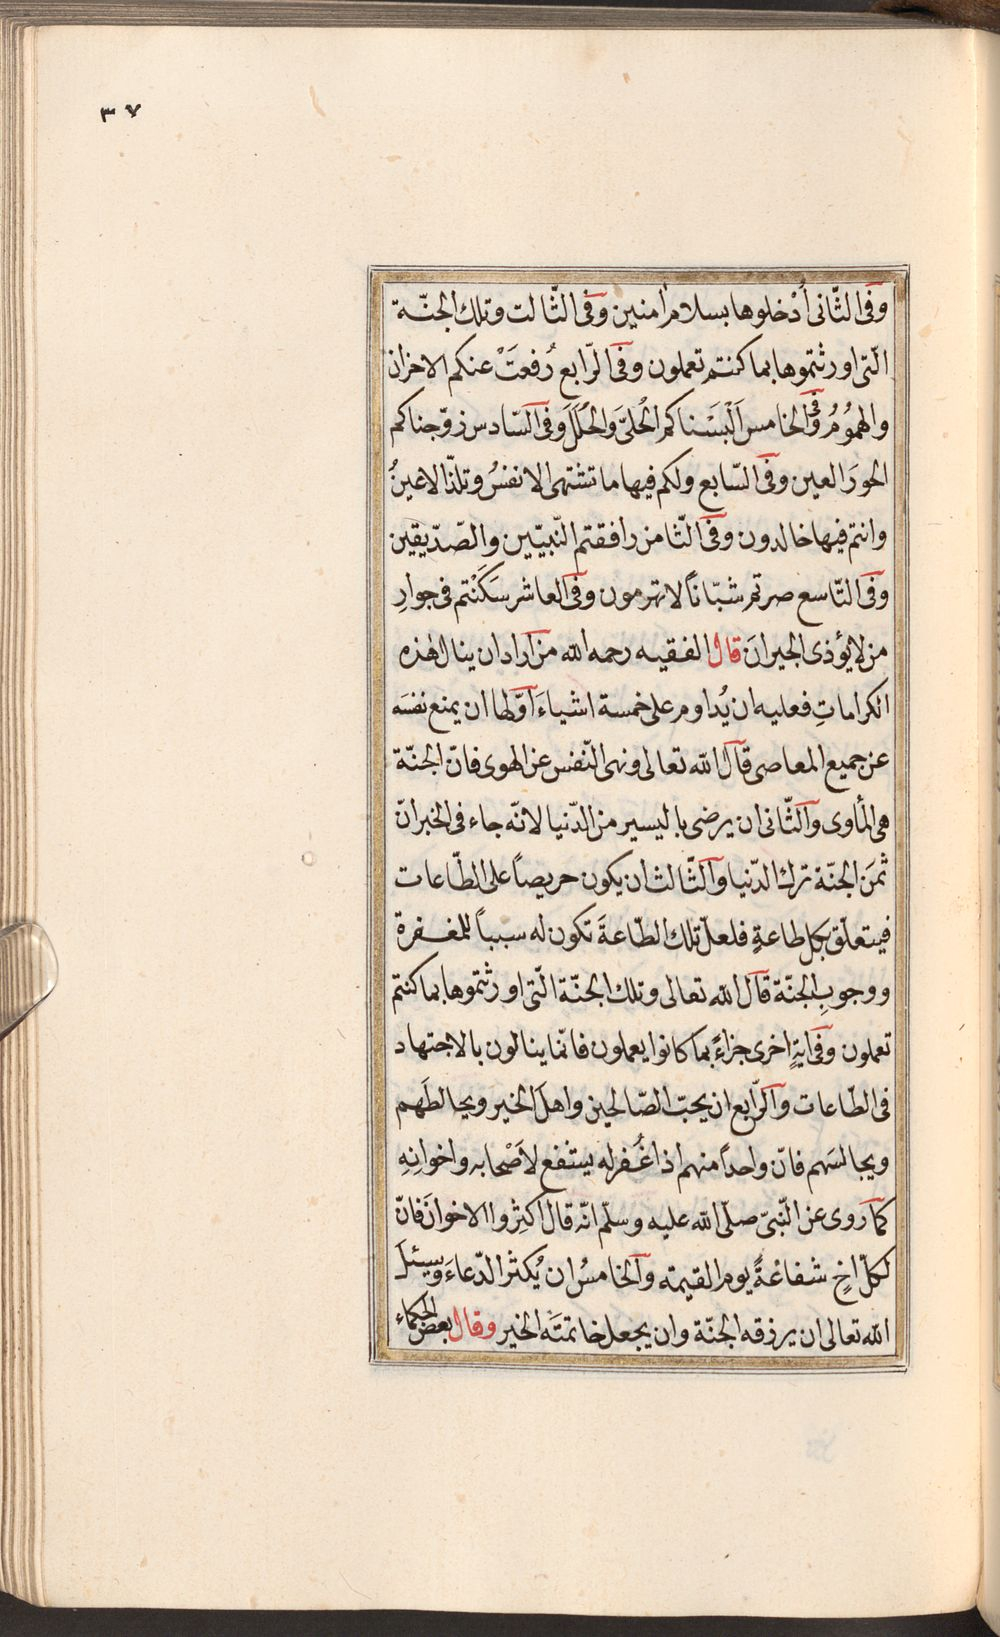 ٣٧
وفى الثّانى أُدْخلوها بسلام اٰمنين وفى الثّالث وتلك الجنّة
الّتى اورثتموها بما كنتم تعملون وفى الرّابع رُفعَتْ عنكم الاحزان
والهمُومُ وفى الخامس اَلْبَسْناكم الحُلىّ وَالحُلَلَ وفى السّادس زوّجناكم
الحورَ العين وفى السّابع ولكم فيها ما تشتهى الانفسُ وتلذّ الاعينُ
وانتم فيها خالدون وفى الثّامن رافقتم النّبيّين والصّدّيقين
وفى التّاسع صرتم شبّاناً لا تهرمون وفى العاشر سَكَنْتم فى جوارِ
من لا يؤذى الجيرانَ قال الفقيه رحمه الله من اراد ان ينال هٰذه
الكراماتِ فعليه ان يُداوم على خمسة اشياءَ اوّلها ان يمنع نفسَه
عن جميع المعاصى قال الله تعالى ونهى النّفس عن الهوى فانّ الجنّة
هى المأوى والثّانى ان يرضى باليسير من الدّنيا لانّه جاء فى الخبر انّ
ثمَن الجنّة ترك الدّنيا والثّالث ان يكون حريصاً على الطّاعات
فيتعلّق بكل طاعةٍ فلعلّ تلك الطّاعةَ تكون له سبباً للمغفرة
ووجوبِ الجنّة قال الله تعالى وتلك الجنّة الّتى اورثتموها بما كنتم
تعملون وفى ايةٍ اخرى جزاءً بما كانوا يعملون فانّما ينالون بالاجتهاد
فى الطّاعات والرّابع ان يحبّ الصّالحين واهلَ الخير ويخالطَهم
ويجالسَهم فانّ واحداً منهم اذا غُفرله يستفع لاَصْحابه واخوانِهِ
كما روى عن النّبىّ صلّى الله عليه وسلّم انّه قال اكثِروا الاخوانَ فانّ
لكلّ اخٍ شفاعةً يوم القيمة والخامسُ ان يُكثر الدّعاءَ ويسئلَ
الله تعالى ان يرزقه الجنّة وان يجعل خاتمتَه الخير وقال بعض الحكماء